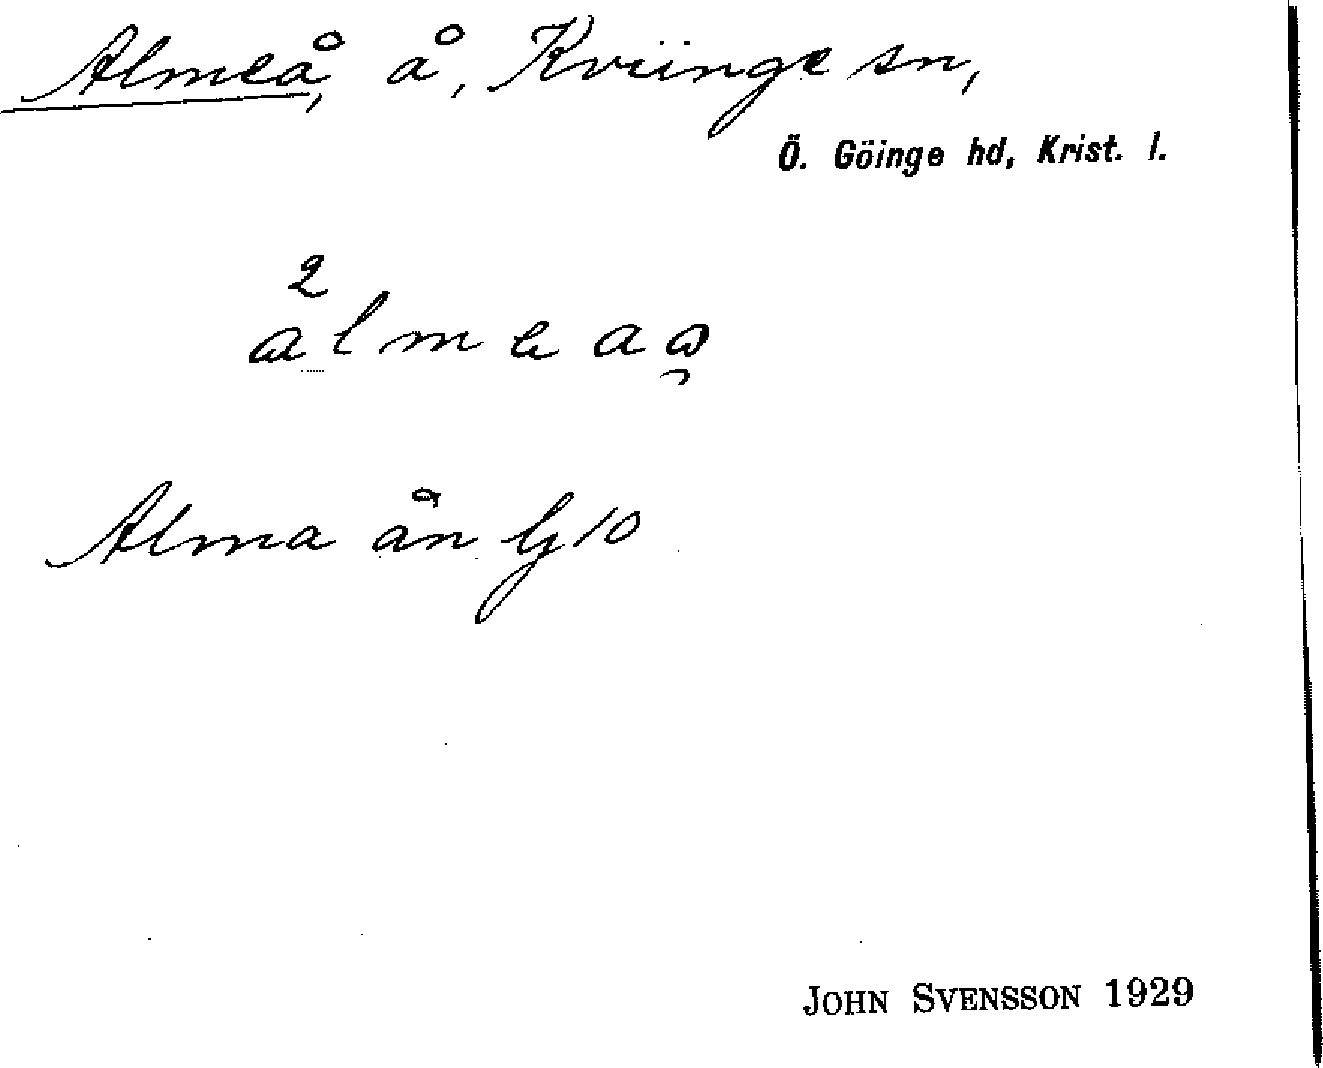 Almeå, å, Kviinge sn,
Ö. Göinge hd, Krist. l.
2
Alma ån Gj 10
JOHN SVENSSON 1929